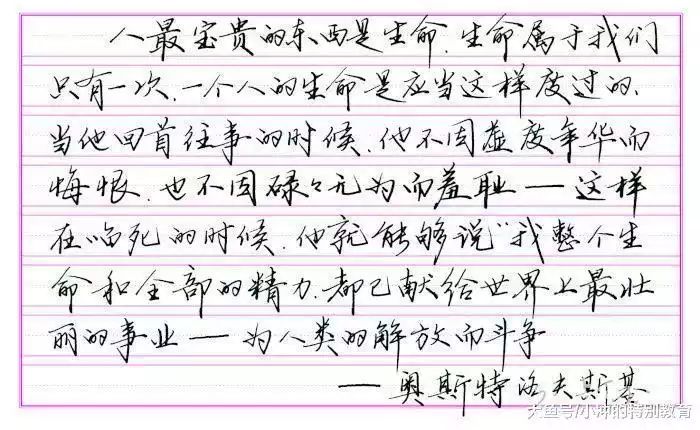 人最宝贵的东西是生命.生命属于我们
只有一次.一个人的生命是应当这样度过的.
当他回首往事的时候.他不因虚度年华而
悔恨.也不因碌々无为而羞耻—这样
在临死的时候.他就能够说"我整个生
命和全部的精力.都已献给世界上最壮
丽的事业—为人类的解放而斗争
—奥斯特洛夫斯基
大鱼号/小冲的特别教育